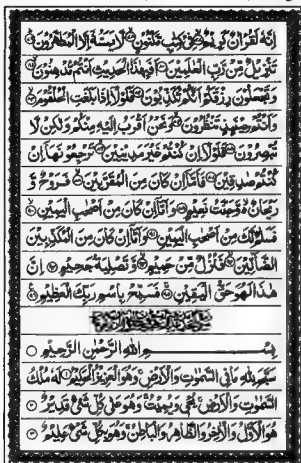 إِنَّهُ لَقُرْآنٌ كَرِيمٌ فِي كِتَابٍ مَكْنُونٍ لَا يَمَسُّهُ إِلَّا الْمُطَهَّرُونَ
تَنْزِيلٌ مِنْ رَبِّ الْعَالَمِينَ أَفَبِهَذَا الْحَدِيثِ أَنْتُمْ مُدْهِنُونَ
وَتَجْعَلُونَ رِزْقَكُمْ أَنَّكُمْ تُكَذِّبُونَ فَلَوْلَا إِذَا بَلَغَتِ الْحُلْقُومَ
وَأَنْتُمْ حِينَئِذٍ تَنْظُرُونَ وَنَحْنُ أَقْرَبُ إِلَيْهِ مِنْكُمْ وَلَكِنْ لَا
تُبْصِرُونَ فَلَوْلَا إِنْ كُنْتُمْ غَيْرَ مَدِينِينَ تَرْجِعُونَهَا إِنْ
كُنْتُمْ صَادِقِينَ فَأَمَّا إِنْ كَانَ مِنَ الْمُقَرَّبِينَ فَرَوْحٌ وَ
رَيْحَانٌ وَجَنَّتُ نَعِيمٍ وَأَمَّا إِنْ كَانَ مِنْ أَصْحَابِ الْيَمِينِ
فَسَلَامٌ لَكَ مِنْ أَصْحَابِ الْيَمِينِ وَأَمَّا إِنْ كَانَ مِنَ الْمُكَذِّبِينَ
الضَّالِّينَ فَنُزُلٌ مِنْ حَمِيمٍ وَتَصْلِيَةُ جَحِيمٍ إِنَّ
هَذَا لَهُوَ حَقُّ الْيَقِينِ فَسَبِّحْ بِاسْمِ رَبِّكَ الْعَظِيمِ
بِسْمِ اللَّهِ الرَّحْمَنِ الرَّحِيمِ
سَبَّحَ لِلَّهِ مَا فِي السَّمَوَاتِ وَالْأَرْضِ وَهُوَ الْعَزِيزُ الْحَكِيمُ لَهُ مُلْكُ
السَّمَوَاتِ وَالْأَرْضِ يُحْيِي وَيُمِيتُ وَهُوَ عَلَى كُلِّ شَيْءٍ قَدِيرٌ
هُوَ الْأَوَّلُ وَالْآخِرُ وَالظَّاهِرُ وَالْبَاطِنُ وَهُوَ بِكُلِّ شَيْءٍ عَلِيمٌ